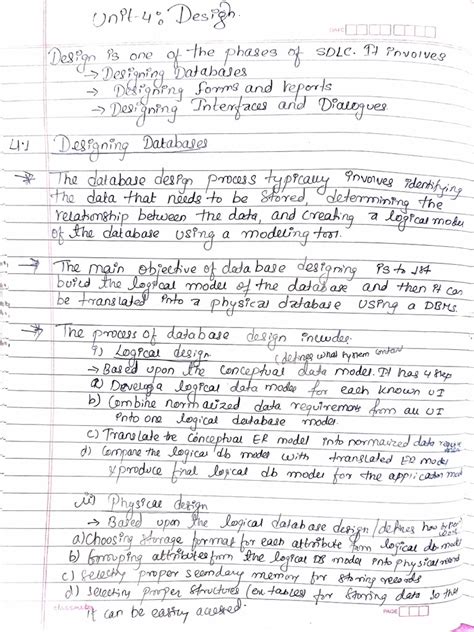 Unit-4: Design.
DATE
Design is one of the phases of SDLC. It involves
→ Designing Databases
→ Designing forms and reports
→ Designing Interfaces and Dialogues
4.1 Designing Databases
→ The database design process typically involves identifying
the data that needs to be stored, determining the
relationship between the data, and creating a logical model
of the database using a modeling tool.
→ The main objective of database designing is to 1st
build the logical model of the database and then it can
be translated into a physical database using a DBMS.
→ The process of database design includes
i) Logical design (defines what system contain)
→ Based upon the conceptual data model. It has 4 step
a) Develop a logical data model for each known UI
b) Combine normalized data requirements from all UI
into one logical database model
c) Translate the conceptual ER model into normalized data
d) Compare the logical db model with translated ER model
& produce final logical db model for the application
ii) Physical design
→ Based upon the logical database design (defines how
a) Choosing storage format for each attribute from logical db model
b) Grouping attributes from the logical DB model into physical
c) selecting proper secondary memory for storing records
d) selecting proper structures (ex tables) for storing data so that
it can be easily accessed.
classmate
PAGE